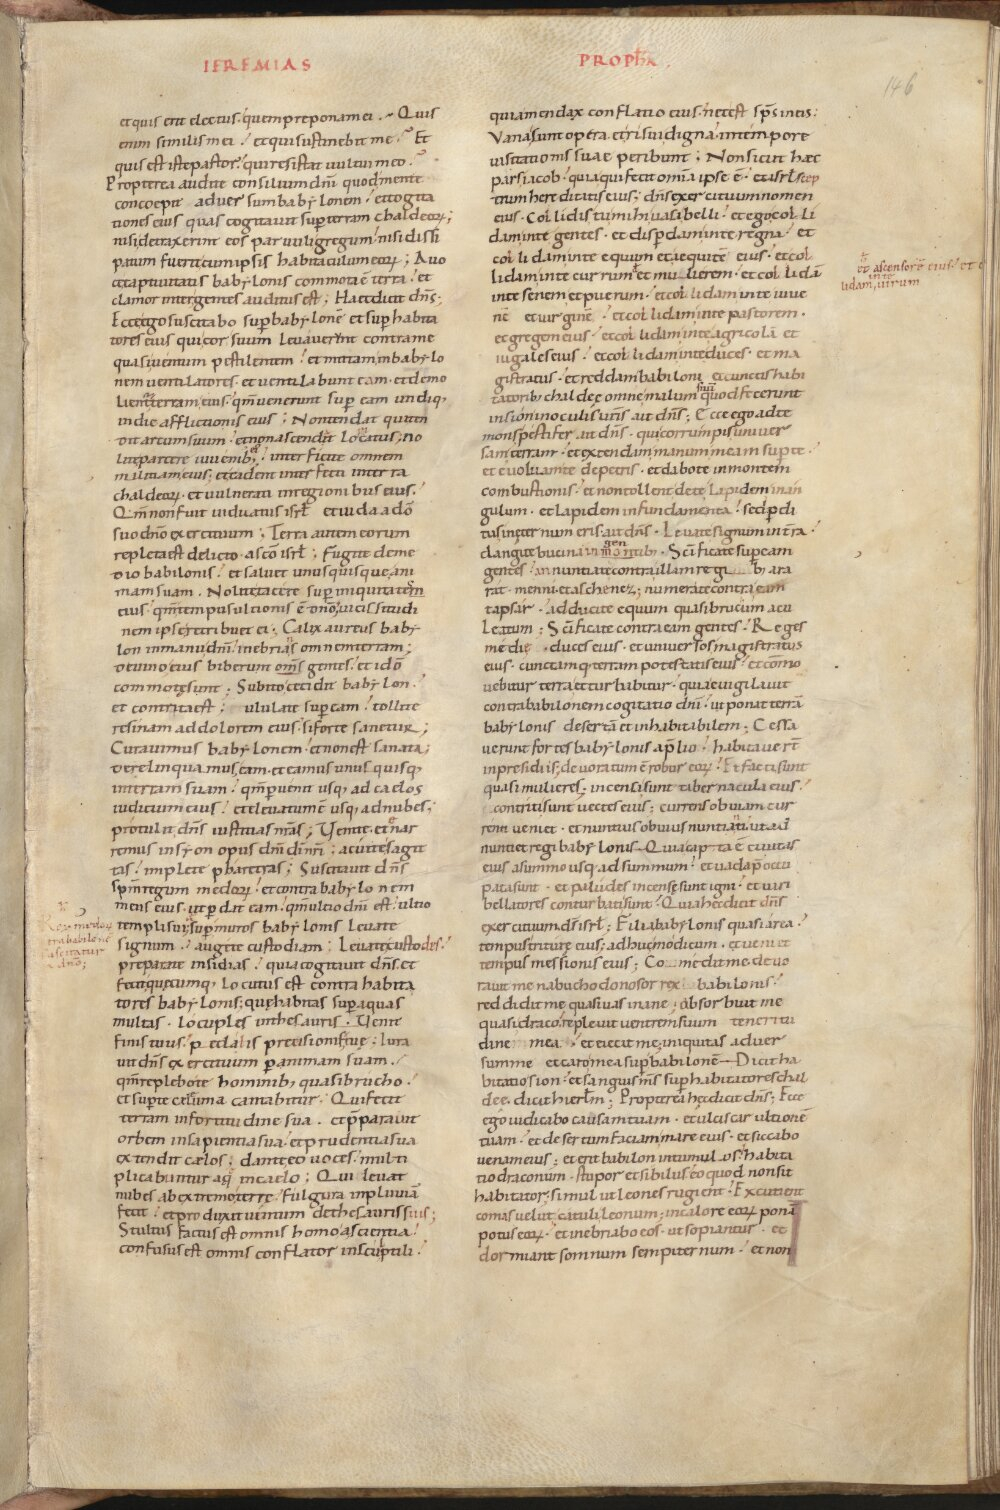 IEREMIAS
PROPhA.
146
et quis erit electus. quem preponam ei. Quis
enim similis mei? et qui sustinebit me? Et
quis est iste pastor? qui resistat uultui meo?
Propterea audite consilium dñi quod mente
concoepit aduersum babylonem. et cogita
tiones eius quas cogitauit sup terram chaldeoꝝ;
nisi detraxerint eos paruuli gregum. nisi dissi
patum fuerit cum ipsis habitaculum eoꝝ; A uo
ce captiuitatis babylonis commota ē terra. et
clamor inter gentes auditus est; Haec dicit dñs;
Ecce ego suscitabo sup babylonē et sup habita
tores eius qui cor suum leuauerint contra me
quasi uentum pestilentem. et mittam in babylo
nem uentilatores. et uentilabunt eam. et demo
lient terram eius. qm̄ uenerunt sup eam undiq;
in die afflictionis eius; Non tendat qui ten
dit arcum suum. et non ascendat loricatus; no
lite parcere iuuenib; interficite omnem
militiam eius; et cadent interfecti in terra
chaldeoꝝ. et uulnerati in regionibus eius.
Qm̄ non fuit uiduatus isrł et iuda a dō
suo dño exercituum; Terra autem eorum
repleta est delicto. a sc̄o isrł; Fugite de me
dio babilonis. et saluet unusquisque ani
mam suam. Nolite tacere sup iniquitatem
eius. qm̄ tempus ultionis ē dño; uicissitudi
nem ipse retribuet ei; Calix aureus baby
lon in manu dñi. inebrians omnem terram;
de uino eius biberunt om̄s gentes. et ideo
commote sunt; Subito cecidit babylon.
et contrita est; ululate sup eam. tollite
resinam ad dolorem eius. si forte sanetur;
Curauimus babylonem. et non est sanata;
derelinquamus eam. et eamus unus quisq;
in terram suam. qm̄ puenit usq; ad caelos
iudicium eius. et eleuatum ē usq; ad nubes;
protulit dñs iustitias nr̄as; Venite. et nar
remus in syon opus dñi di nri; acuite sagit
tas. implete pharetras; Suscitauit dñs
spm̄ regum medoꝝ. et contra babylonem
mens eius. ut perdat eam. qm̄ ultio dñi est. ultio
templi sui; sup muros babylonis leuate
signum. augete custodiam; leuate custodes.
preparate insidias. quia cogitauit dñs. et
fecit quecumq; locutus est contra habita
tores babylonis; que habitas sup aquas
multas. locuples in thesauris. Venit
finis tuus. pedalis precisionis tue; Iura
uit dñs exercituum p animam suam.
qm̄ replebo te hominib; quasi brucho.
et sup te celeuma cantabitur. Qui fecit
terram in fortitudine sua. preparauit
orbem in sapientia sua. et prudentia sua
extendit caelos; dante eo uoces. multi
plicabuntur aque in caelo; Qui leuat
nubes ab extremo terre. fulgura in pluuiā
fecit. et produxit uentum de thesauris suis;
Stultus factus est omnis homo a scientia.
confusus est omnis conflator in sculptili.
quia mendax conflatio eius. nec est sps in eis;
Vana sunt opera. et risui digna. in tempore
uisitationis suae peribunt; Non sicut haec
pars iacob. quia qui fecit omnia ipse ē. et isrł scep
trum hereditatis eius; dñs exercituum nomen
eius. Collidis tu mihi uasa belli. et ego colli
dam in te gentes. et disperdam in te regna. et
collidam in te equum et equitē eius. et col
lidam in te currum et mulierem. et collidā
in te senem et puerum. et collidam in te iuue
nē et uirginē. et collidam in te pastorem.
et gregem eius. et collidam in te agricolā et
iugales eius. et collidam in te duces. et ma
gistratus. et reddam babiloni et cunctis habi
tatorib; chaldee omne malum suū quod fecerunt
in sion in oculis ur̄is ait dñs; Ecce ego ad te
mons pestifer ait dñs. qui corrumpis uniuer
sam terram. et extendam manum meam sup te.
et euoluam te de petris. et dabo te in montem
combustionis. et non tollent de te lapidem in an
gulum. et lapidem in fundamenta. sed pdi
tus in eternum eris ait dñs. Leuate signum in terra.
clangite bucina in gentib;. Scificate sup eam
gentes. annuntiate contra illam regib; ara
rat. menni. et aschenez; numerate contra eam
tapsar. adducite equum quasi brucum acu
leatum; Scificate contra eam gentes. Reges
medie. duces eius. et uniuersos magistratus
eius. cunctamq; terram potestatis eius. et cōmo
uebitur terra et turbabitur. quia euigilauit
contra babilonem cogitatio dñi. ut ponat terrā
babylonis desertā et inhabitabilem; Cessa
uerunt fortes babylonis a plio. habitauer̄t
in presidiis; deuoratum ē robur eoꝝ. Et facti sunt
quasi mulieres; incensi sunt tabernacula eius.
contriti sunt uectes eius; currens obuiam cur
renti ueniet. et nuntius obuius nuntianti. ut ad
nuntiet regi babylonis. Quia capta ē ciuitas
eius a summo usq; ad summum. et uada p̄occu
pata sunt. et paludes incense sunt igni. et uiri
bellatores conturbati sunt. Quia hec dicit dñs
exercituum. ds isrł; Filia babylonis quasi area.
tempus triture eius; adhuc modicum. et ueniet
tempus messionis eius; Comedit me. deuo
rauit me nabuchodonosor rex babilonis.
reddidit me quasi uas inane; absorbuit me
quasi draco. repleuit uentrem suum teneritu
dine mea. et eiecit me; iniquitas aduer
sum me et caro mea sup babilonē. Dicit ha
bitatio sion. et sanguis ms̄ sup habitatores chal
dee. dicit hierłm; Propterea hec dicit dñs; Ecce
ego iudicabo causam tuam. et ulciscar ultionē
tuam. et desertum faciam mare eius. et siccabo
uenam eius; et erit babilon in tumulos. habita
tio draconum. stupor et sibilus. eo quod non sit
habitator; simul ut leones rugient. Excutient
comas uelut catuli leonum; in calore eoꝝ ponā
potus eoꝝ. et inebriabo eos. ut sopiantur. et
dormiant somnum sempiternum. et non
et ascensorē eius. et c
in te
lidam, uirum